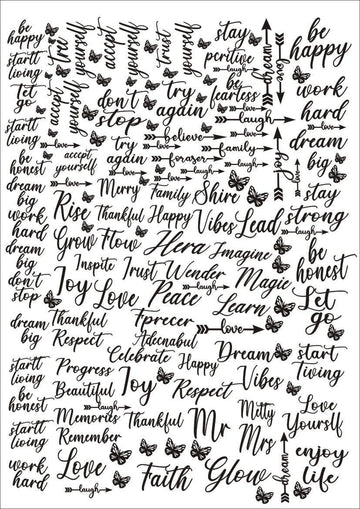 be
happy
startt
living
let
go
startt
living
be
honest
dream
big
work
hard
dream
big
don't
stop
dream
big
startt
living
be
honest
startt
living
work
hard
accept
yourself
try
yourself
accept
yourself
trust
yourself
don't
stop
try
again
stay
peritive
laugh
be
fearless
love
laugh
dream
forev
believe
family
love
joy
love
accept
yourself
love
try
again
love
foraser
laugh
Merry
Family
Shire
Rise
Thankful
Happy
Vibes
Lead
Grow
Flow
Hera
Imagine
Inspite
Trust
Wender
Magic
Joy
Love
Peace
laugh
Learn
Thankful
Respect
Fprecer
Adecnabul
love
Celebrate
Happy
Dream
Progress
Beautiful
Joy
Respect
Vibes
laugh
Memories
Remember
Thankful
Mr
Mitty
Mrs
Love
laugh
Faith
Glow
dream
be
happy
work
hard
dream
big
love
stay
strong
laugh
be
honest
Let
go
start
Tiving
Love
Yourslf
enjoy
life